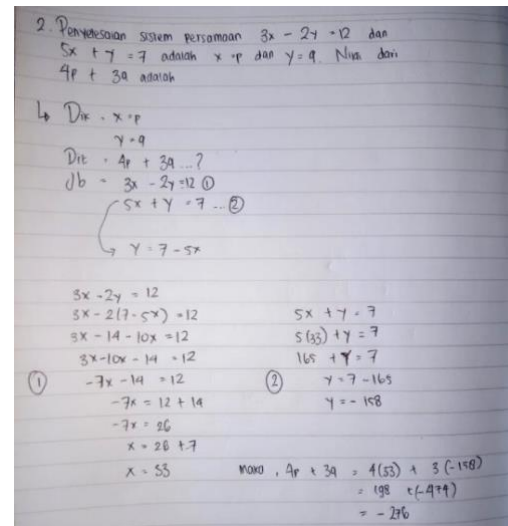 2. Penyelesaian sistem persamaan 3x - 2y = 12 dan
5x + y = 7 adalah x = p dan y = q. Nilai dari
4p + 3q adalah
↳ Dik = x = p
y = q
Dit = 4p + 3q ...?
Jb = 3x - 2y = 12 ①
5x + y = 7 ... ②
↳ y = 7 - 5x
3x - 2y = 12
3x - 2(7 - 5x) = 12
3x - 14 - 10x = 12
3x - 10x - 14 = 12
① -7x - 14 = 12
-7x = 12 + 14
-7x = 26
x = 26 + 7
x = 33
5x + y = 7
5(33) + y = 7
165 + y = 7
② y = 7 - 165
y = - 158
maka, 4p + 3q = 4(33) + 3(-158)
= 198 + (-474)
= - 276